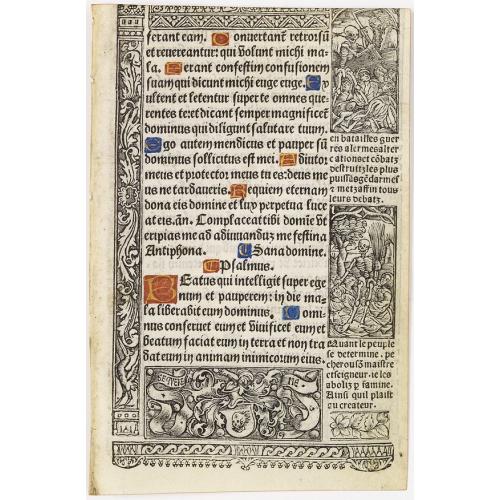 ferant eam. Convertant retrorsū
et revereantur: qui volunt michi ma-
la. Ferant confestim confusionem
suam qui dicunt michi euge euge. Ex
ultent et letentur super te omnes que-
rentes te: et dicant semper magnificet̄
dominus qui diligunt salutare tuum.
Ego autem mendicus et pauper sū
dominus sollicitus est mei. Adiutor
meus et protector meus tu es: deus me
us ne tardaveris. Requiem eternam
dona eis domine et lux perpetua luce
at eis. añ. Complaceat tibi domīe vt
eripias me ad adiuuanduꝫ me festina
Antiphona. Sana domine.
Psalmus.
Beatus qui intelligit super ege
num et pauperem: in die ma-
la liberabit eum dominus. Domi-
nus conservet eum et viuificet eum et
beatum faciat eum in terra et non tra
dat eum in animam inimicorum eius.
en batailles guer
res alermes alter
cations et cōbatz
destruitz les plus
puissās gēdarmes
et metz a fin tous
leurs debatz.
Quant le peuple
se determine. pe
cher ou sō maistre
et seigneur. ie les
abolis p famine.
Ainsi quil plaist
au createur.